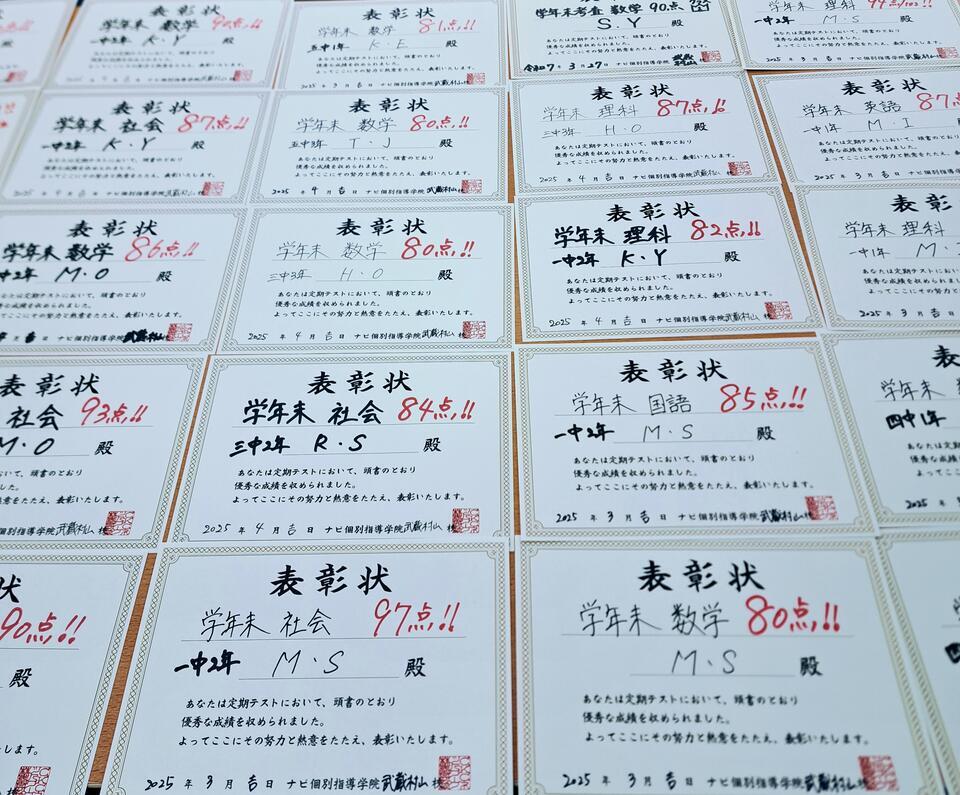 学年末 数学 90点!!
一中2年 K・Y 殿
あなたは定期テストにおいて、頭書のとおり
優秀な成績を収められました。
よってここにその努力と熱意をたたえ、表彰いたします。
学年末 数学 81点!!
五中1年 K・E 殿
あなたは定期テストにおいて、頭書のとおり
優秀な成績を収められました。
よってここにその努力と熱意をたたえ、表彰いたします。
2025年 3月 吉日 ナビ個別指導学院武蔵村山校
学年末考査 数学 90点
S.Y 殿
あなたは定期テストにおいて、頭書のとおり
優秀な成績を収められました。
よってここにその努力と熱意をたたえ、表彰いたします。
令和7年3月27日 ナビ個別指導学院
理科
一中2年 M・S 殿
あなたは定期テストにおいて、頭書のとおり
優秀な成績を収められました。
よってここにその努力と熱意をたたえ、表彰いたします。
2025年 3月 吉日 ナビ個別指導学院
表彰状
学年末 社会 87点!!
一中2年 K・Y 殿
あなたは定期テストにおいて、頭書のとおり
優秀な成績を収められました。
よってここにその努力と熱意をたたえ、表彰いたします。
2025年 4月 吉日 ナビ個別指導学院武蔵村山校
表彰状
学年末 数学 80点!!
五中3年 T・J 殿
あなたは定期テストにおいて、頭書のとおり
優秀な成績を収められました。
よってここにその努力と熱意をたたえ、表彰いたします。
2025年 4月 吉日 ナビ個別指導学院武蔵村山校
表彰状
学年末 理科 87点!!
三中3年 H・O 殿
あなたは定期テストにおいて、頭書のとおり
優秀な成績を収められました。
よってここにその努力と熱意をたたえ、表彰いたします。
2025年 4月 吉日 ナビ個別指導学院武蔵村山校
表彰状
学年末 英語 87点
一中1年 M・I 殿
あなたは定期テストにおいて、頭書のとおり
優秀な成績を収められました。
よってここにその努力と熱意をたたえ、表彰いたします。
2025年 3月 吉日 ナビ個別指導学院
表彰状
学年末 数学 86点!!
中2年 M・O 殿
あなたは定期テストにおいて、頭書のとおり
優秀な成績を収められました。
よってここにその努力と熱意をたたえ、表彰いたします。
月 吉日 ナビ個別指導学院武蔵村山校
表彰状
学年末 数学 80点!!
三中3年 H・O 殿
あなたは定期テストにおいて、頭書のとおり
優秀な成績を収められました。
よってここにその努力と熱意をたたえ、表彰いたします。
2025年 4月 吉日 ナビ個別指導学院武蔵村山校
表彰状
学年末 理科 82点!!
一中2年 K・Y 殿
あなたは定期テストにおいて、頭書のとおり
優秀な成績を収められました。
よってここにその努力と熱意をたたえ、表彰いたします。
2025年 4月 吉日 ナビ個別指導学院武蔵村山校
表彰
学年末 理科
一中1年 M・
あなたは定期テストにおいて、
優秀な成績を収められました。
よってここにその努力と熱意
2025年 3月 吉日
表彰状
社会 93点!!
M・O 殿
において、頭書のとおり
られました。
の努力と熱意をたたえ、表彰いたします。
吉日 ナビ個別指導学院武蔵村山校
表彰状
学年末 社会 84点!!
三中2年 R・S 殿
あなたは定期テストにおいて、頭書のとおり
優秀な成績を収められました。
よってここにその努力と熱意をたたえ、表彰いたします。
2025年 4月 吉日 ナビ個別指導学院武蔵村山校
表彰状
学年末 国語 85点!!
一中2年 M・S 殿
あなたは定期テストにおいて、頭書のとおり
優秀な成績を収められました。
よってここにその努力と熱意をたたえ、表彰いたします。
2025年 3月 吉日 ナビ個別指導学院武蔵村山校
表
学年末
四中1年
あなたは定期
優秀な成績を
よってここに
状
90点!!
殿
とおり
します。
表彰状
学年末 社会 97点!!
一中2年 M・S 殿
あなたは定期テストにおいて、頭書のとおり
優秀な成績を収められました。
よってここにその努力と熱意をたたえ、表彰いたします。
2025年 3月 吉日 ナビ個別指導学院武蔵村山校
表彰状
学年末 数学 80点!!
M・S 殿
あなたは定期テストにおいて、頭書のとおり
優秀な成績を収められました。
よってここにその努力と熱意をたたえ、表彰いたします。
2025年 3月 吉日 ナビ個別指導学院武蔵村山校